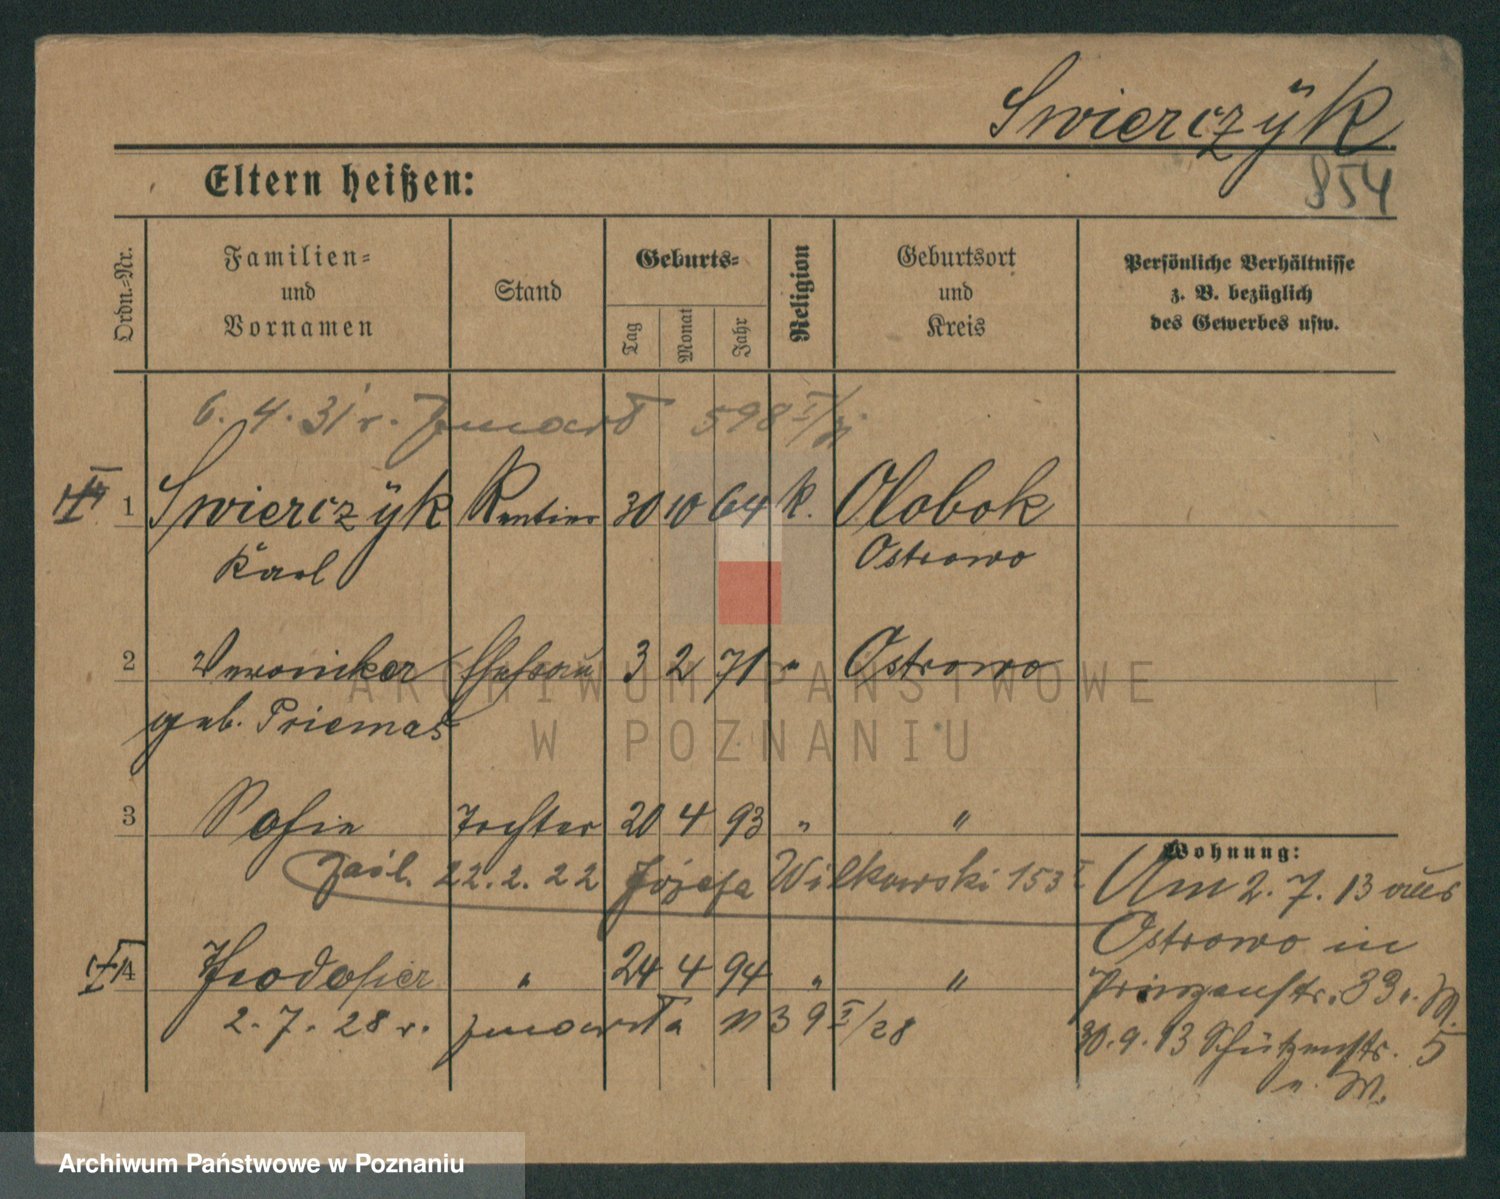 Swierczÿk
854
Eltern heißen:
Ordn.-Nr.
Familien-
und
Vornamen
Stand
Geburts-
Tag
Monat
Jahr
Religion
Geburtsort
und
Kreis
Persönliche Verhältnisse
z. B. bezüglich
des Gewerbes usw.
6. 4. 31 r. zmarł 598 I/
1 Swierczÿk Rentier 30 10 64 k. Olobok
Karl Ostrowo
2 Veronika Ehefrau 3 2 71 " Ostrowo
geb. Priemas
3 Sofie Tochter 20 4 93 " "
zaśl. 22.2.22 Józefa Wilkowski 153 I
4 Theodosia " 24 4 94 " "
2. 7. 28 r. zmarła 39 I/28
Wohnung:
Am 2. 7. 13 aus
Ostrowo in
Prinzenstr. 33 b. M.
30. 9. 13 Schützenstr. 5
b. M.
ARCHIWUM PAŃSTWOWE
W POZNANIU
Archiwum Państwowe w Poznaniu